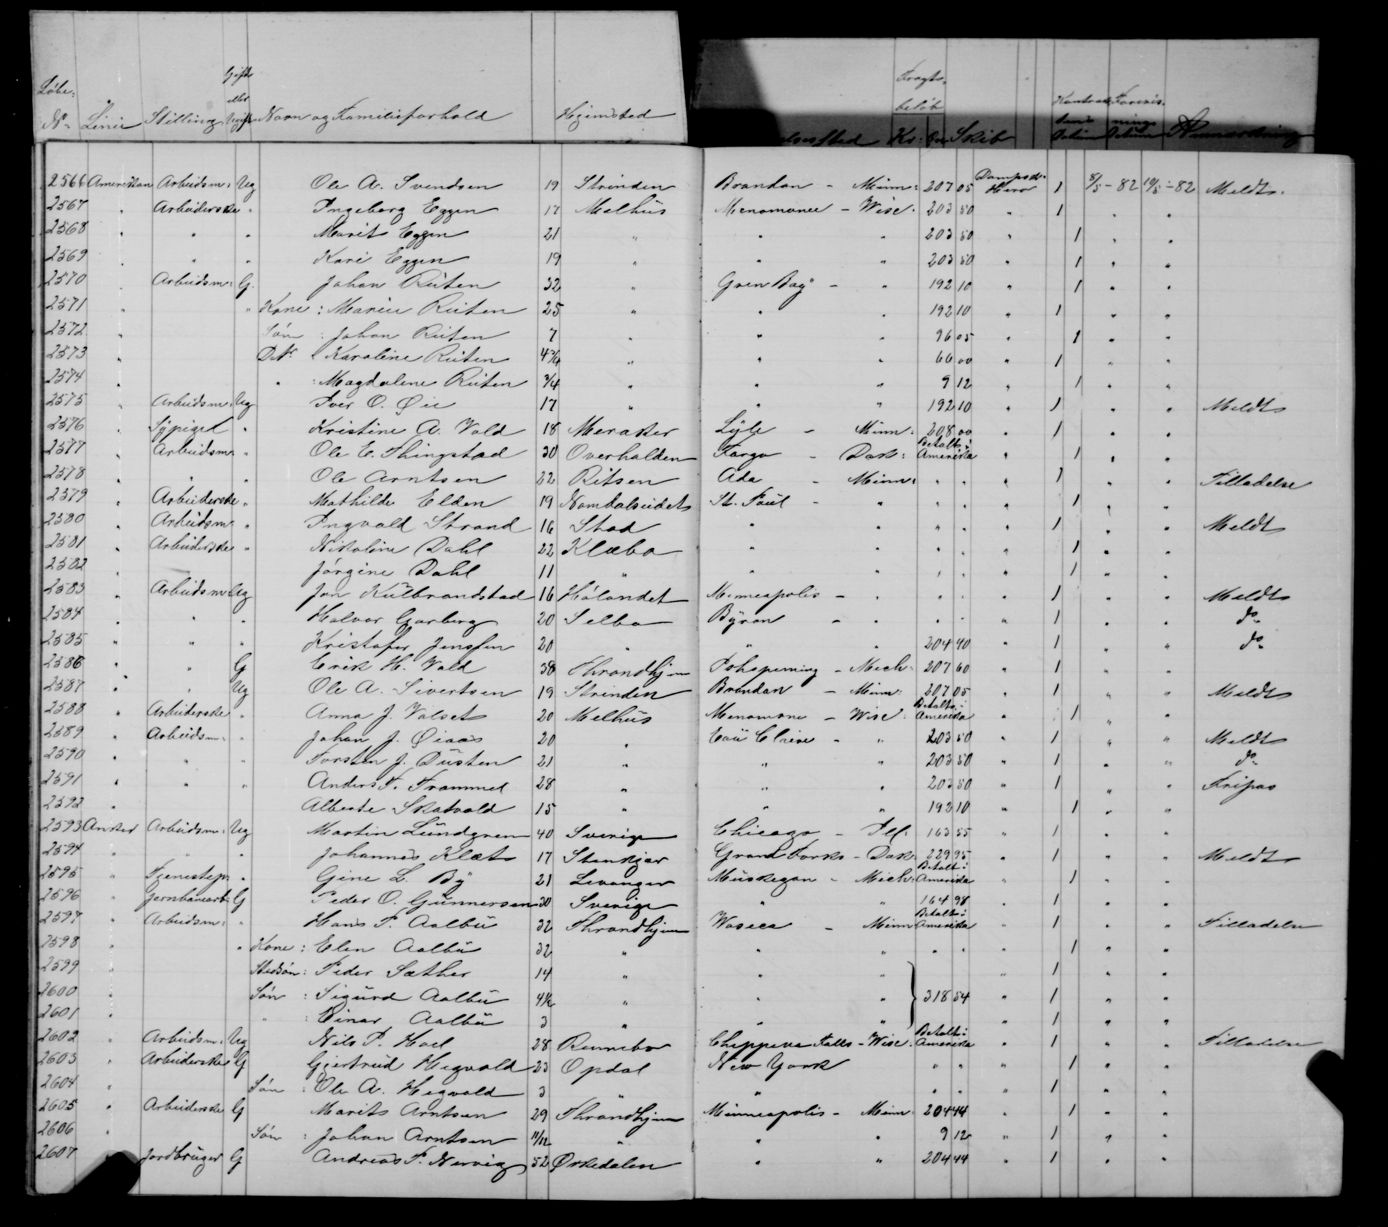 Løbe- No Linie Stilling Gift eller Ugift Navn og Familieforhold Hjemsted Fragtbeløb Kr: Skib Anmærkning
2566 Amerikan Arbeidsm: Ug Ole A. Svendsen 19 Strinden Brandon - Minn: 207 05 Dampsk: Hero 1 8/5-82 10/5-82 Meldt
2567 " Arbeiderske " Ingeborg Eggen 17 Melhus Menomonee - Wisc. 203 50 " 1 " "
2568 " " " Marit Eggen 21 " " " 203 50 " 1 " "
2569 " " " Kari Eggen 19 " " " 203 50 " 1 " "
2570 " Arbeidsm: G. Johan Riiten 32 " Green Bay - " 192 10 " 1 " "
2571 " " Kone: Marie Riiten 25 " " " 192 10 " 1 " "
2572 " Søn: Johan Riiten 7 " " " 96 05 " 1 " "
2573 " Dtr Karoline Riiten 4¾ " " " 66 00 " 1 " "
2574 " " : Magdalene Riiten ¾ " " " 9 12 " 1 " "
2575 " Arbeidsm. Ug Iver O. Øie 17 " " " 192 10 " 1 " " Meldt
2576 " Sypige " Kristine A. Vold 18 Meraker Lyle - Minn: 208 00 " 1 " "
2577 " Arbeidsm. " Ole E. Thingstad 30 Overhalden Fargo - Dak: Betalt i Amerika " 1 " "
2578 " " " Ole Arntsen 22 Ritsen Ada - Minn: " " " 1 " " Tilladelse
2579 " Arbeiderske " Mathilde Elden 19 Namdalseidet St. Paul - " " " " 1 " "
2580 " Arbeidsm " Ingvald Strand 16 Stod " " " " " 1 " " Meldt
2581 " Arbeiderske " Nikoline Dahl 22 Klæbo " " " " " 1 " "
2582 " " Jørgine Dahl 11 " " " " " " 1 " "
2583 " Arbeidsm Ug Jon Kulbrandstad 16 Hålandet Minneapolis - " " " " 1 " " Meldt
2584 " " " Halvor Garberg 20 Selbo Byron - " " " " 1 " " do
2585 " " " Kristofer Jenssen 20 " " " 204 40 " 1 " " do
2586 " " G Erik H. Vold 38 Throndhjem Ishpeming - Mich. 207 60 " 1 " "
2587 " " Ug Ole A. Sivertsen 19 Strinden Brandon - Minn. 207 05 " 1 " " Meldt
2588 " Arbeiderske " Anna J. Valset 20 Melhus Menomone - Wisc: Betalt i Amerika " 1 " "
2589 " Arbeidsm: " Johan J. Øiaas 20 " Eau Claire - " 203 50 " 1 " " Meldt
2590 " " " Torsten J. Dusten 21 " " " 203 50 " 1 " " do
2591 " " " Anders T. Trammel 28 " " " 203 50 " 1 " " Fripas
2592 " Alberte Skatvold 15 " " " 192 10 " 1 " "
2593 Anker Arbeidsm: Ug Martin Lundgren 40 Sverige Chicago - Ill. 163 55 " 1 " "
2594 " " " Johannes Klæt 17 Stenkjær Grand Forks - Dak. 229 95 " 1 " " Meldt
2595 " Tjenestep. " Gine L. By 21 Levanger Muskegon - Mich: Betalt i Amerika " 1 " "
2596 " Jernbanearb: G Peder O. Gunnersen 30 Sverige " " 164 98 " 1 " "
2597 " Arbeidsm: " Hans P. Aalbu 32 Throndhjem Waseca - Minn Betalt i Amerika " 1 " " Tilladelse
2598 " " Kone: Elen Aalbu 32 " " " " " " 1 " "
2599 " Stedsøn: Peder Sæther 14 " " " " 1 " "
2600 " Søn: Sigurd Aalbu 4½ " " " 318 54 " 1 " "
2601 " " : Einar Aalbu 3 " " " " 1 " "
2602 " Arbeidsm: Ug Nils P. Hoel 28 Rennebo Chippeva Falls - Wisc: Betalt i Amerika " 1 " " Tilladelse
2603 " Arbeiderske G Gjertrud Hegvold 23 Opdal New York " " " 1 " "
2604 " Søn: Ole A. Hegvold 3 " " " " " 1 " "
2605 " Arbeiderske G Marit Arntsen 29 Throndhjem Minneapolis - Minn: 204 44 " 1 " "
2606 " Søn: Johan Arntsen 11/12 " " " 9 12 " 1 " "
2607 Jordbruger G Andreas P. Nervig 52 Ørkedalen " " 204 44 " 1 " "